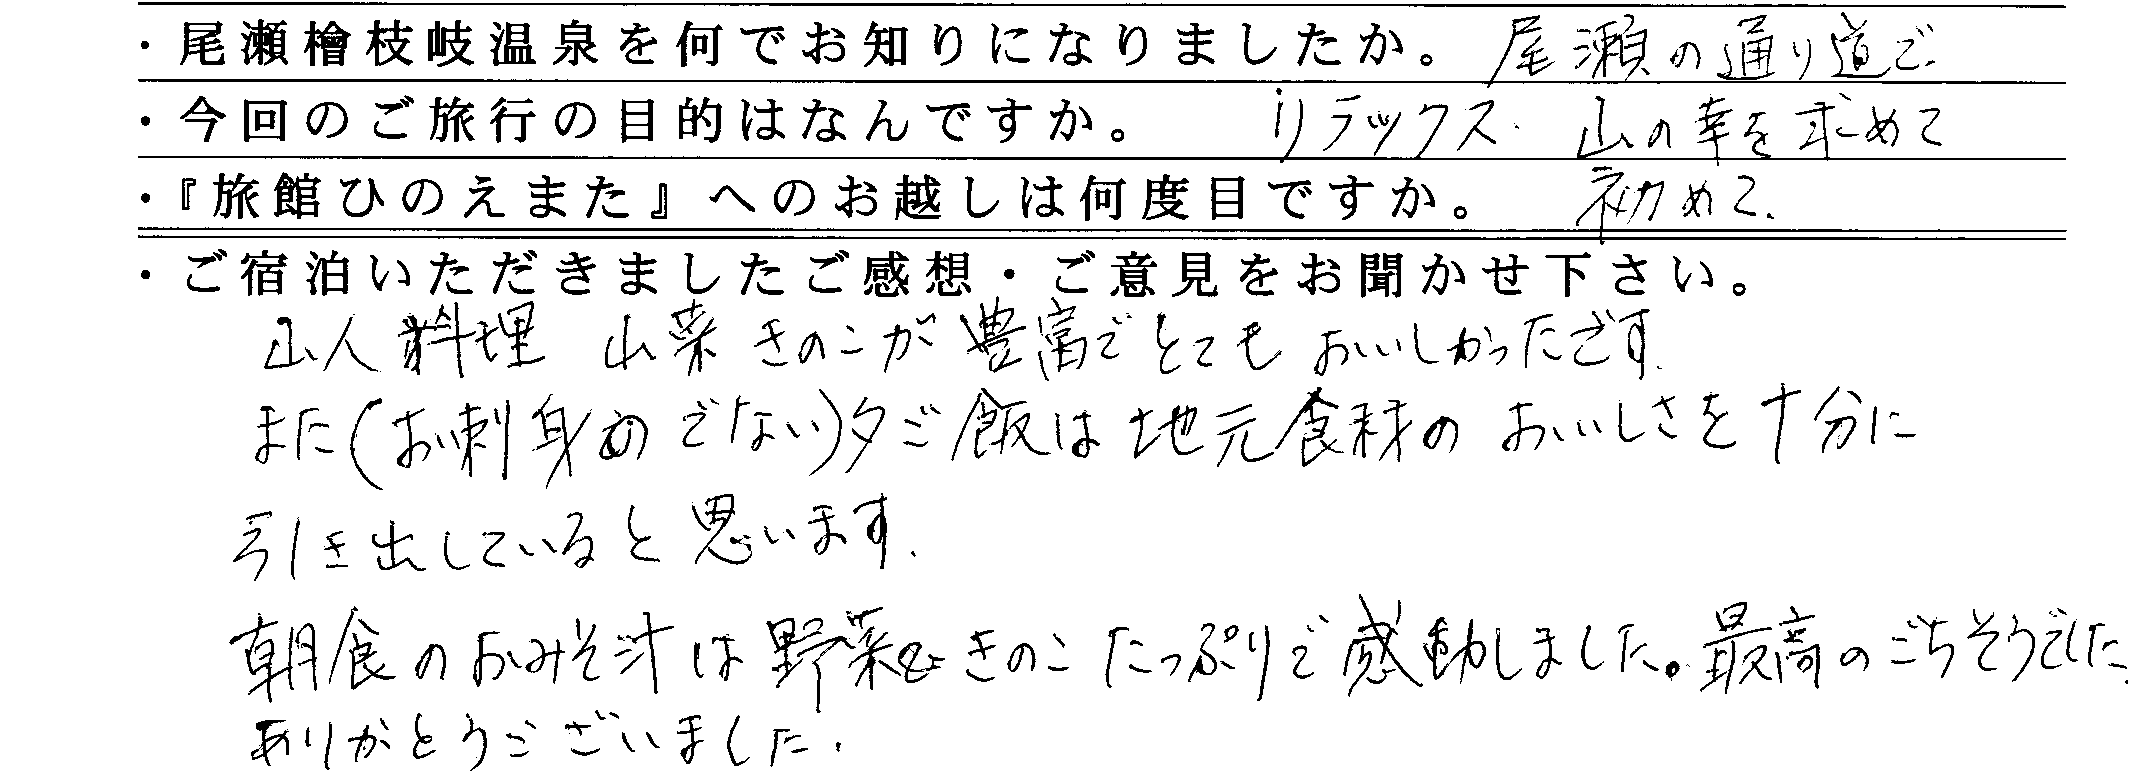 ・尾瀬檜枝岐温泉を何でお知りになりましたか。 尾瀬の通り道で.
・今回のご旅行の目的はなんですか。 リラックス. 山の幸を求めて
・『旅館ひのえまた』へのお越しは何度目ですか。 初めて.
・ご宿泊いただきましたご感想・ご意見をお聞かせ下さい。
山人料理 山菜きのこが豊富でとてもおいしかったです.
また(お刺身のでない)夕ご飯は地元食材のおいしさを十分に
引き出していると思います.
朝食のおみそ汁は野菜ときのこたっぷりで感動しました。最高のごちそうでした.
ありがとうございました.